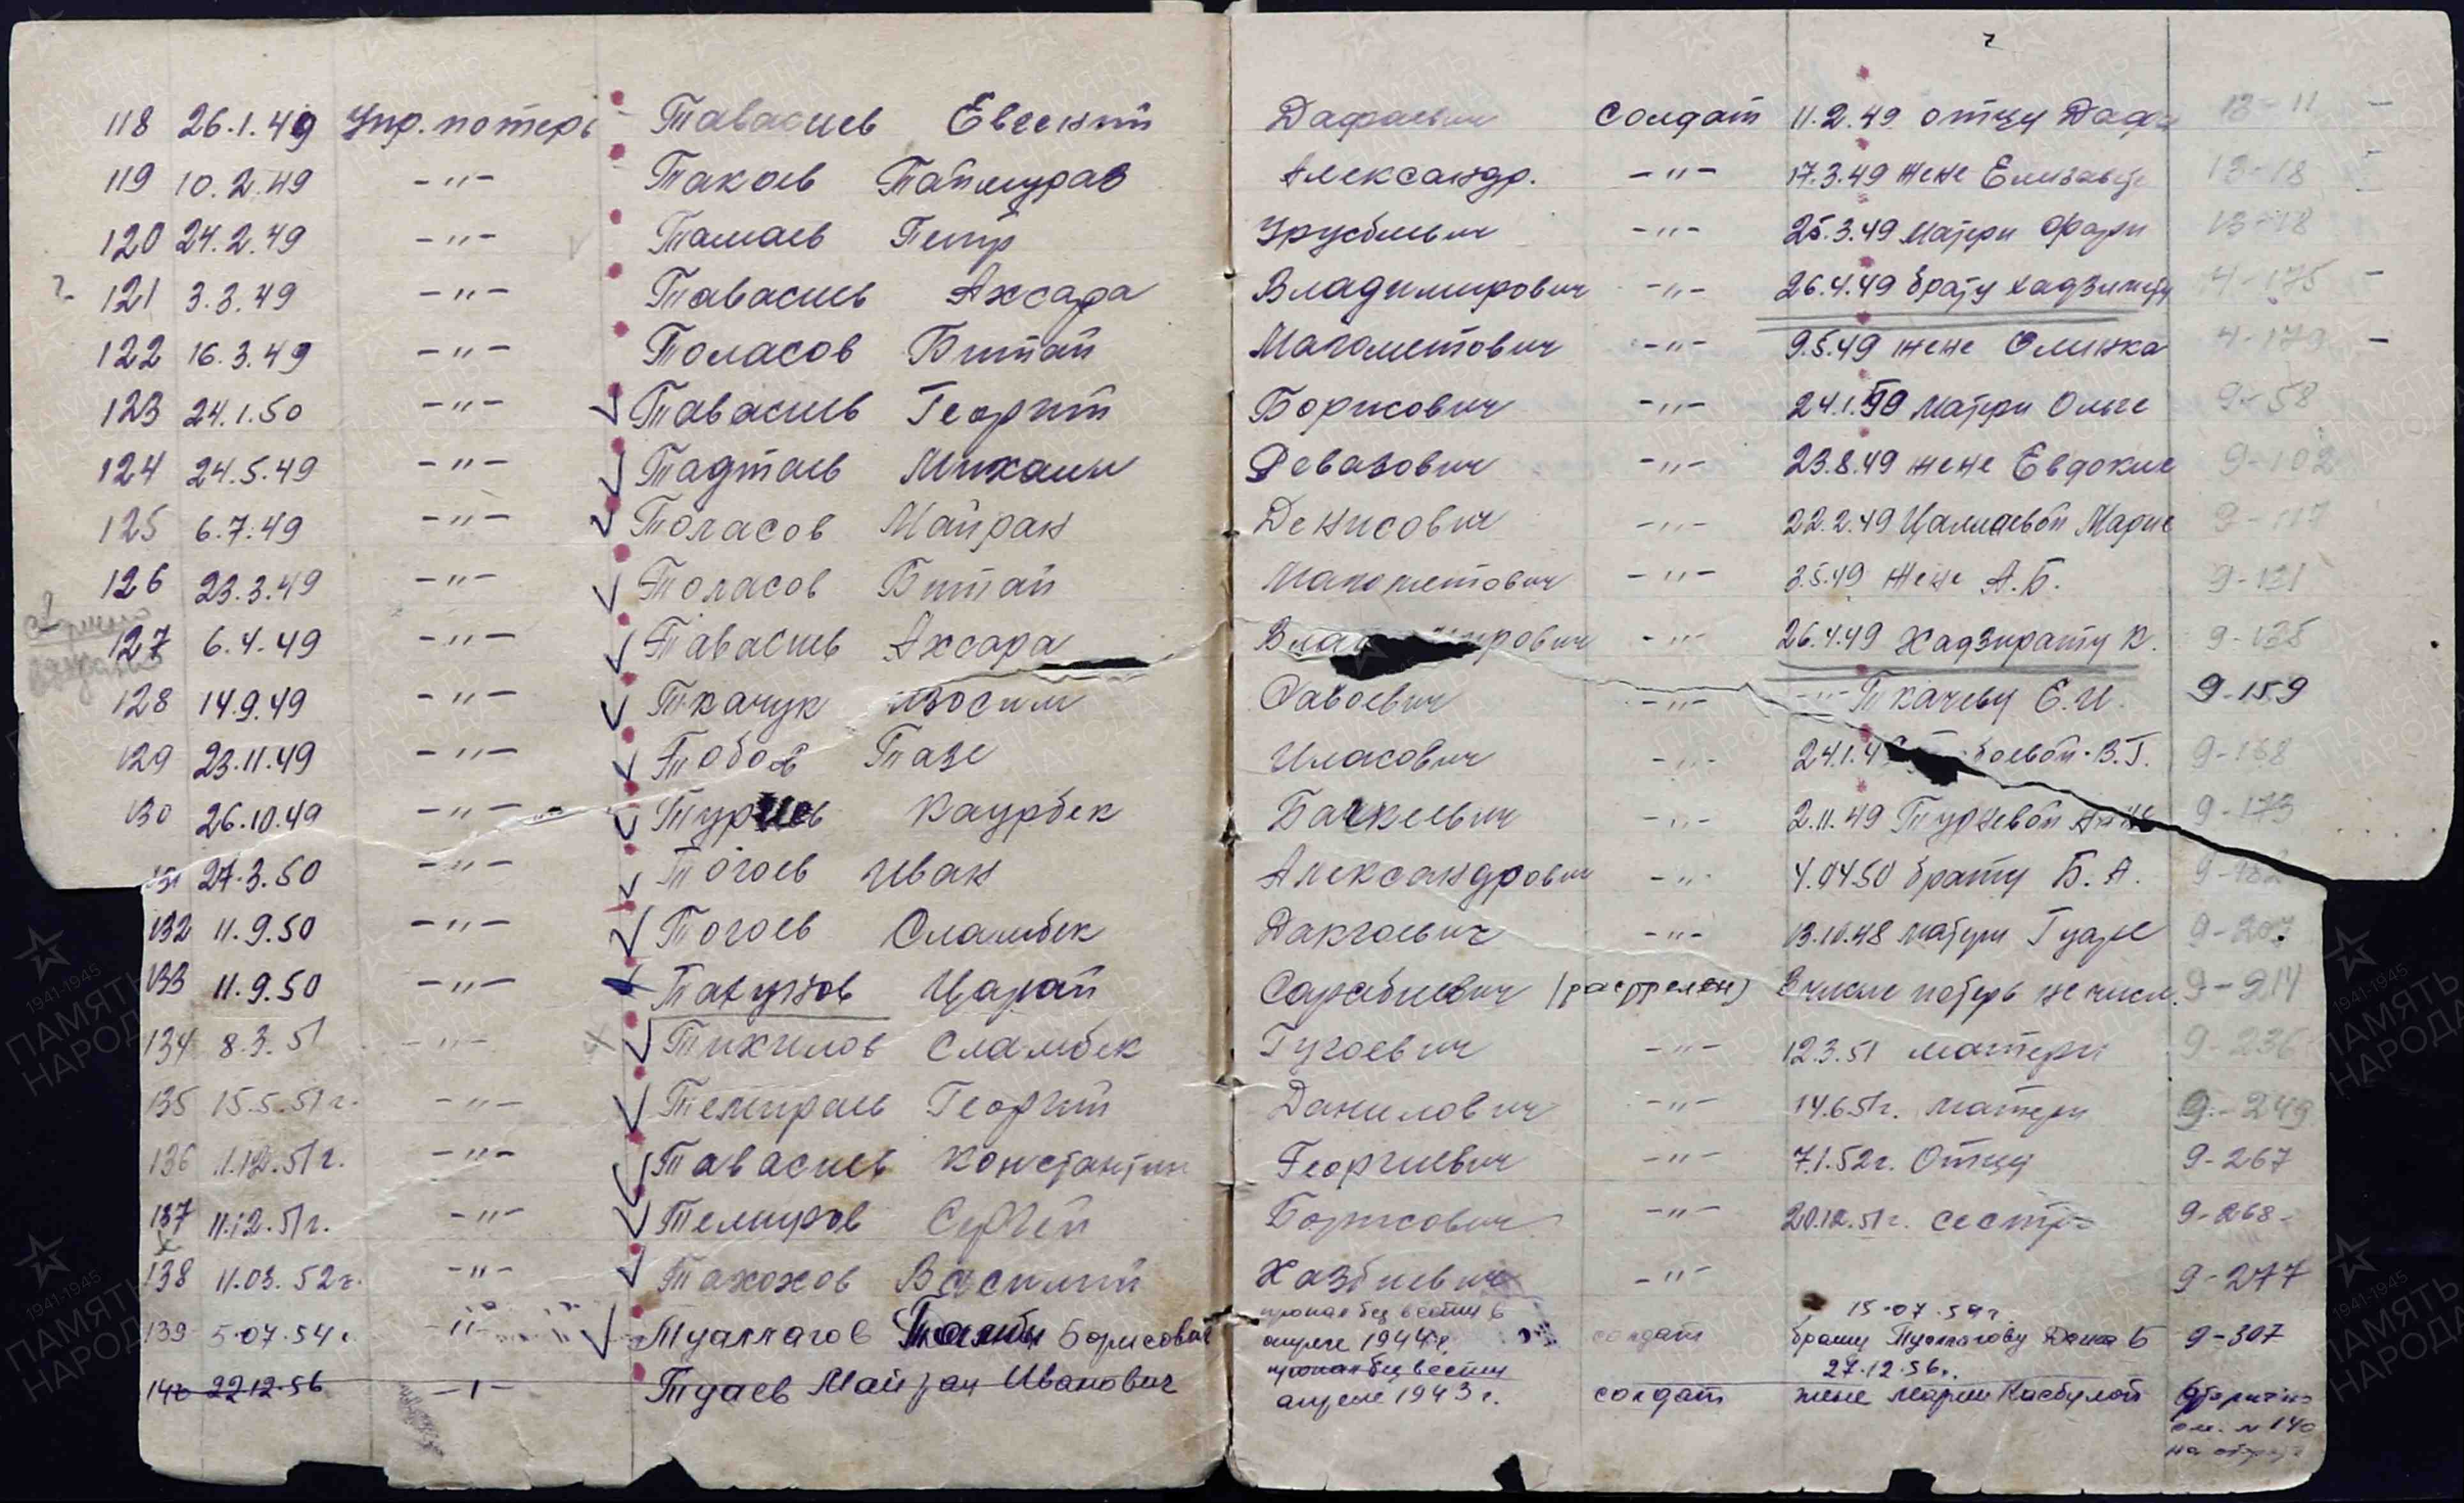 118 26.1.49 Упр. потерь Тавасиев Евгений Дафаевич солдат 11.2.49 отцу Дафа 13-11 -
119 10. 2. 49 -"- Такоев Таймураз Александр. -"- 17.3.49 жене Елизавет 13-18
120 24. 2. 49 -"- Тамаев Петр Урусбиевич -"- 25.3.49 матери Фари 13-18
? 121 3. 3. 49 -"- Тавасиев Ахсара Владимирович -"- 26.4.49 брату Хадзимету 4-175 -
122 16. 3. 49 -"- Толасов Битай Магометович -"- 9.5.49 жене Олинка 4-179 -
123 24.1.50 -"- Тавасиев Георгий Борисович -"- 24.1.50 матери Ольге 9-58
124 24.5.49 -"- Тадтаев Михаил Девазович -"- 23.8.49 жене Евдокие 9-102
125 6.7.49 -"- Толасов Майран Денисович -"- 22.2.49 Цаллаевой Марие 9-117
126 23.3.49 -"- Толасов Битай Магометович -"- 3.5.49 жене А.Б. 9-131
127 6.4.49 -"- Тавасиев Ахсара Вла ирович -"- 26.4.49 Хадзирату К. 9-135
128 14.9.49 -"- Ткачук Савоевич -"- -"- Ткачеву Е.И. 9-159
129 23.11.49 -"- Тобоев Тазе Иласович -"- 24.1.4 боевой В.Г. 9-168
130 26.10.49 -"- Каурбек -"- 2.11.49 9-173
131 27.3.50 -"- Тогоев Иван Александрович -"- 4.04.50 брату Б. А. 9-182
132 11.9.50 -"- Тогоев Сламбек Дакгоевич -"- 13.10.48 матери Гуаре 9-207
133 11.9.50 -"- Царай Сарабиевич (расстрелян) в числе потерь не числ. 9-214
134 8.3.51 -"- Тихилов Сламбек Гугоевич -"- 12.3.51 матери 9-236
135 15.5.51г. -"- Темираев Георгий Данилович -"- 14.6.51г. матери 9-249
136 1.12.51г. -"- Тавасиев Константин Георгиевич -"- 7.1.52г. Отцу 9-267
137 11.12.51г. -"- Темиров Сергей Борисович -"- 20.12.51г. сестре 9-268
138 11.03.52г. -"- Тахохов Василий Хазбиевич -"- 9-277
пропал без вести в 15-07.54г
139 5-07.54г. -"- Туаллагов Борисович апреле 1944г. солдат брату Туаллагову Б 9-307
пропал без вести 27.12.56г.
140 22.12.56 -"- Туаев Майран Иванович апреле 1943г. солдат жене Марии Касбулат
см. №140
на